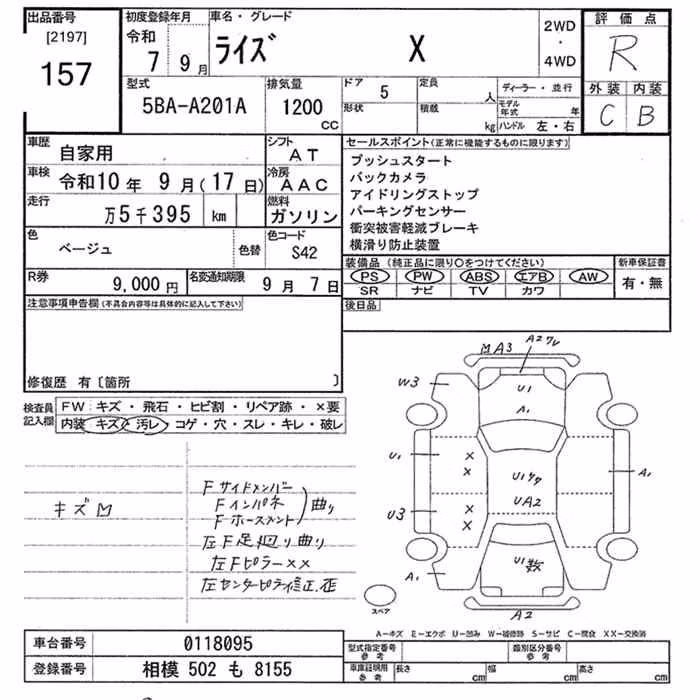 出品番号
[2197]
157
初度登録年月
令和
7 9月
車名・グレード
ライズ X
2WD
・
4WD
評価点
R
外装 内装
C B
型式
5BA-A201A
排気量
1200
CC
ドア 5
形状
定員 人
積載 kg
ディーラー・並行
モデル年式 年
ハンドル 左・右
車歴 自家用
車検 令和10年 9月(17日)
走行 万5千395 km
シフト
AT
冷房
AAC
燃料
ガソリン
色 ベージュ
色替
色コード
S42
R券 9,000円
名変通知期限 9月 7日
セールスポイント(正常に機能するものに限ります)
プッシュスタート
バックカメラ
アイドリングストップ
パーキングセンサー
衝突被害軽減ブレーキ
横滑り防止装置
装備品(純正品に限り○をつけてください)
PS PW ABS エアB AW
SR ナビ TV カワ
新車保証書
有・無
後日品
注意事項申告欄(不具合内容等は具体的に記入して下さい)
修復歴 有〔箇所 〕
検査員記入欄
FW:キズ・飛石・ヒビ割・リペア跡・×要
内装:キズ・汚レ・コゲ・穴・スレ・キレ・破レ
キズM
Fサイドメンバー
Fインパネ
Fホースメント
曲り
左F足廻り曲り
左Fピラー××
左センターピラー修正歪
MA3
A2ワレ
W3
U1
A1
U1
×
×
A1
U1
UA2
U3
×
×
U1数
A1
A2
スペア
A－キズ E－エクボ U－凹み W－補修跡 S－サビ C－腐食 XX－交換済
車台番号 0118095
登録番号 相模 502 も 8155
型式指定番号
参考
類別区分番号
参考
車庫証明用
参考
長さ cm
幅 cm
高さ cm